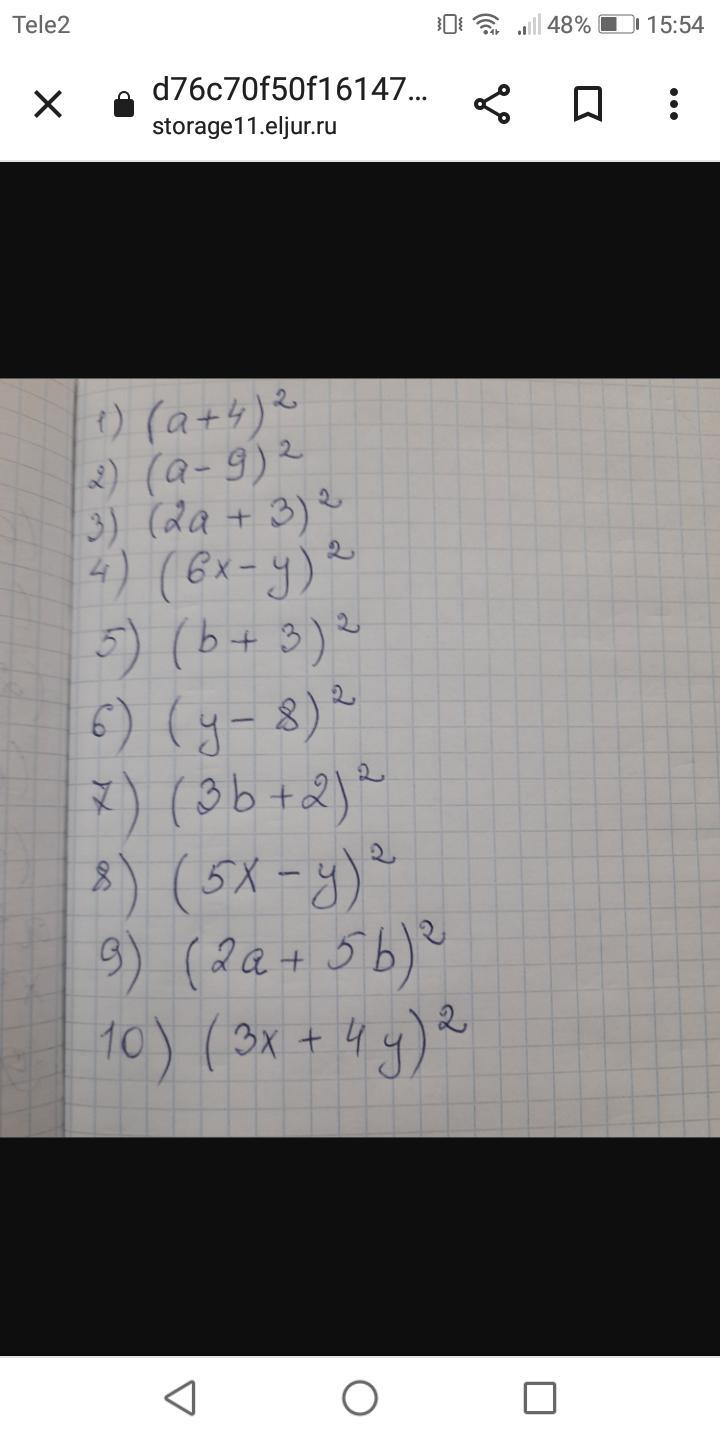 Tele2 48% 15:54
d76c70f50f16147...
storage11.eljur.ru
1) (a+4)²
2) (a-9)²
3) (2a+3)²
4) (6x-y)²
5) (b+3)²
6) (y-8)²
7) (3b+2)²
8) (5x-y)²
9) (2a+5b)²
10) (3x+4y)²